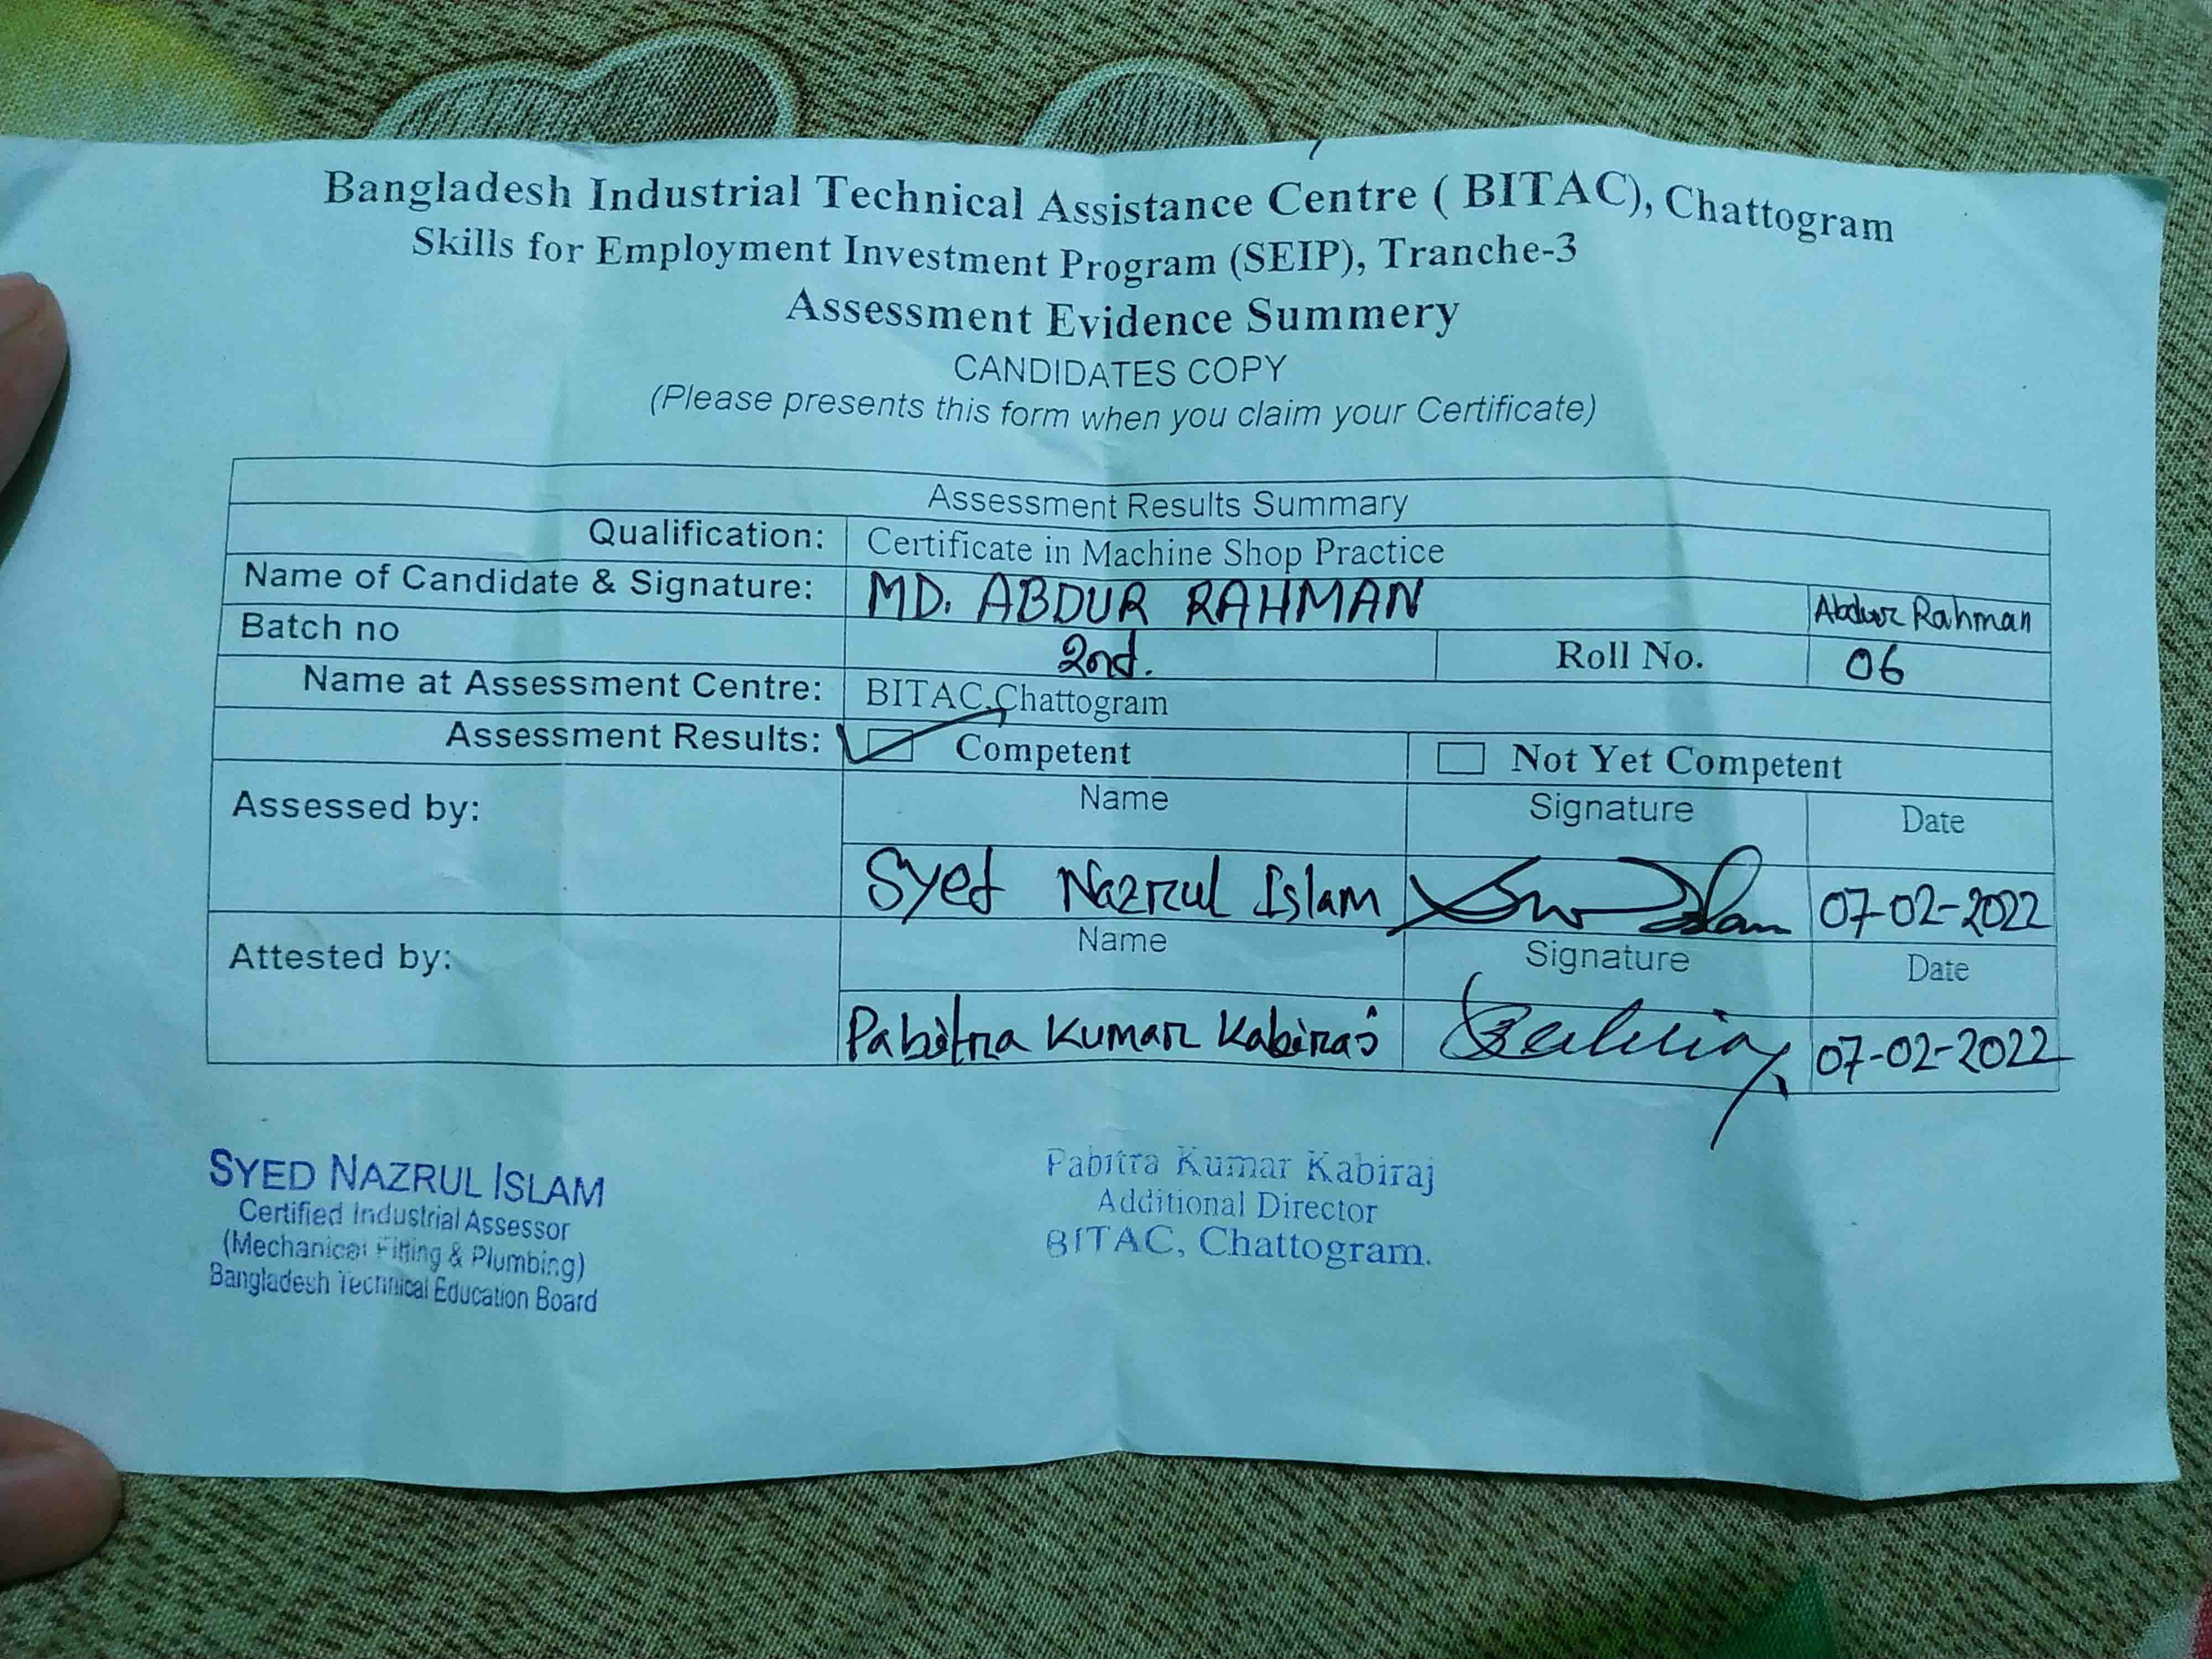 Bangladesh Industrial Technical Assistance Centre ( BITAC), Chattogram
Skills for Employment Investment Program (SEIP), Tranche-3
Assessment Evidence Summery
CANDIDATES COPY
(Please presents this form when you claim your Certificate)
Assessment Results Summary
Qualification: Certificate in Machine Shop Practice
Name of Candidate & Signature: MD. ABDUR RAHMAN Abdur Rahman
Batch no 2nd. Roll No. 06
Name at Assessment Centre: BITAC,Chattogram
Assessment Results: Competent Not Yet Competent
Assessed by: Name Signature Date
Syed Nazrul Islam 07-02-2022
Attested by: Name Signature Date
Pabitra Kumar Kabiraj 07-02-2022
SYED NAZRUL ISLAM
Certified Industrial Assessor
(Mechanical Fitting & Plumbing)
Bangladesh Technical Education Board
Pabitra Kumar Kabiraj
Additional Director
BITAC, Chattogram.